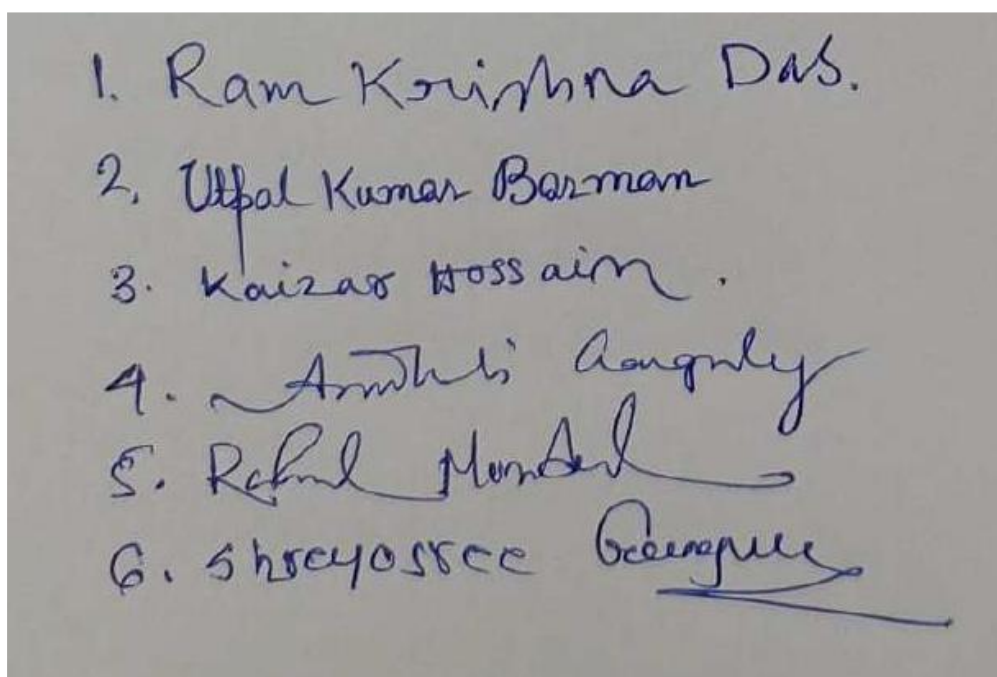 1. Ram Krishna Das.
2. Utpal Kumar Barman
3. Kaizar Hossain.
4. Ganguly
5. Rahul Mondal
6. Shreyosree